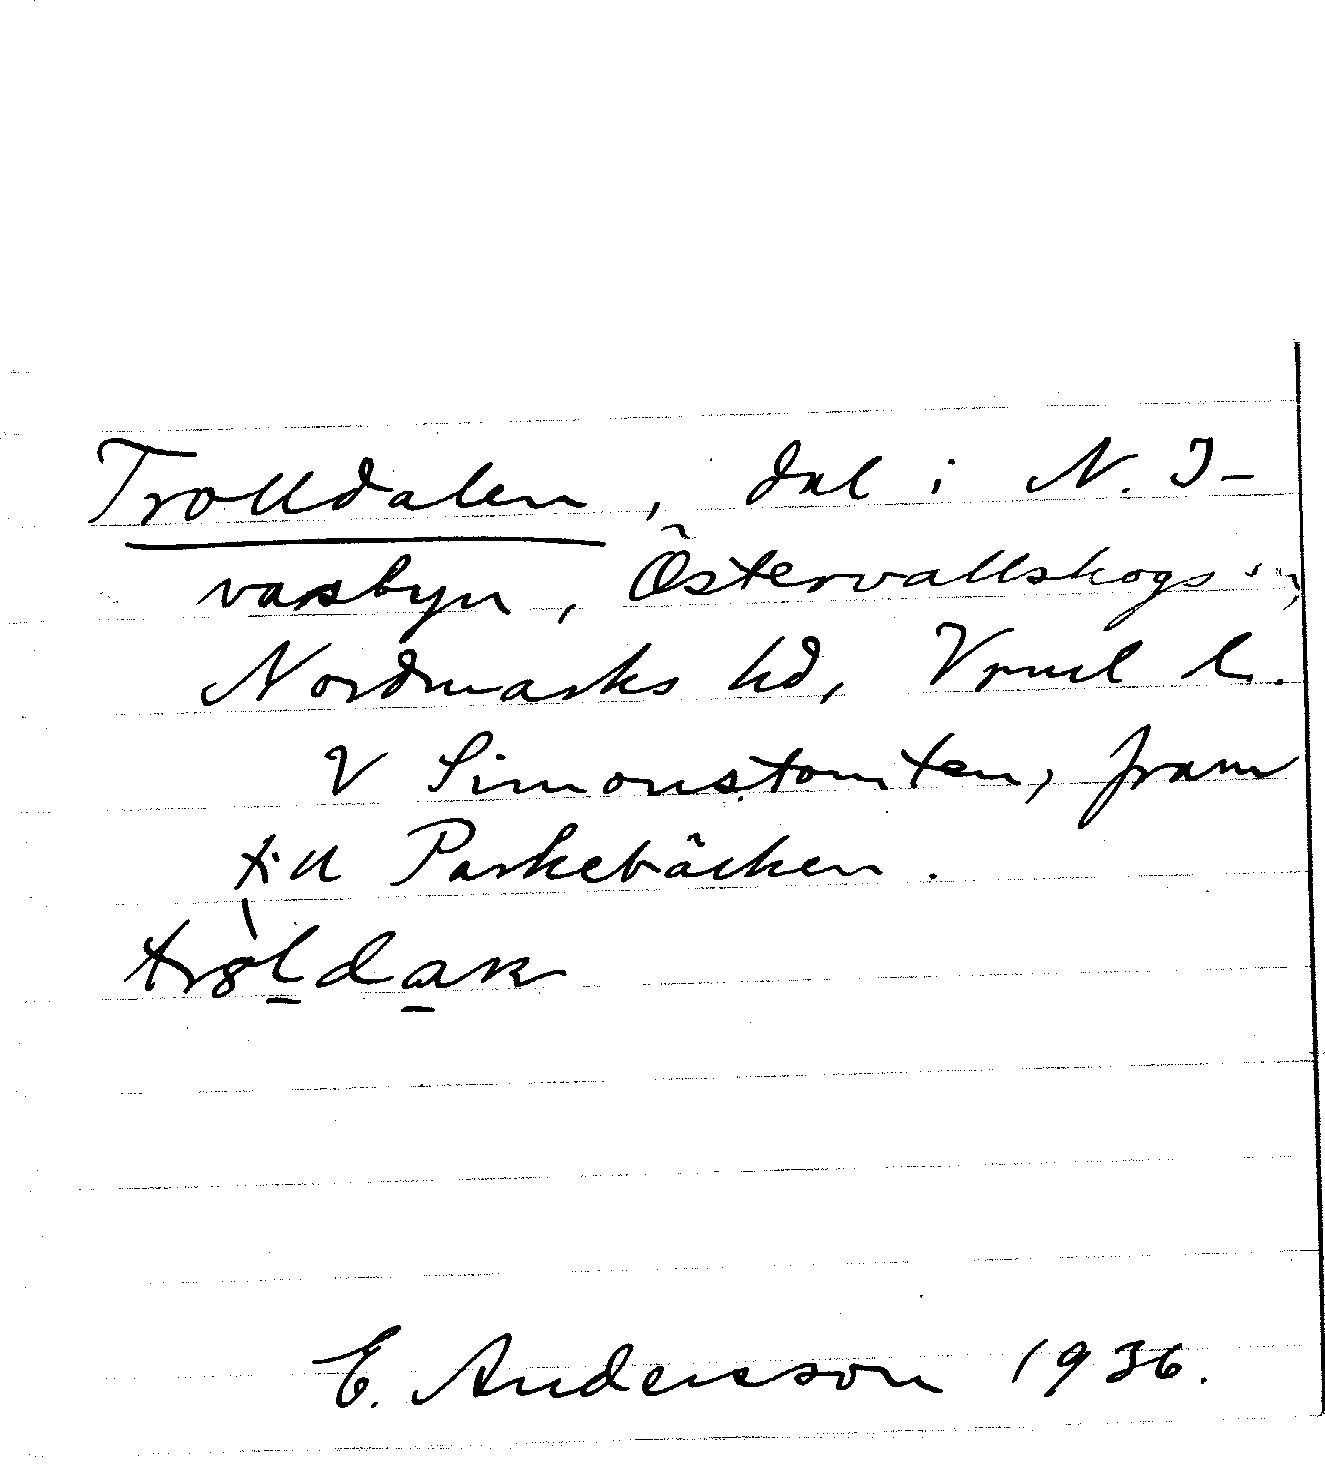 Trolldalen, dal i N. I-
varsbyn, Östervallskogs sn,
Nordmarks hd, Vrml l.
V Simonstomten, fram
till Parkebäcken.
E. Andersson 1936.